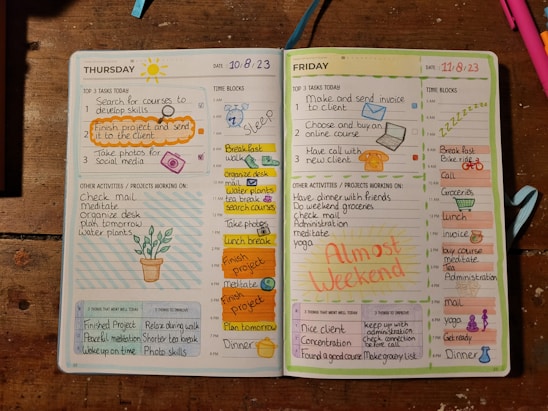 THURSDAY
DATE: 10/8/23
TOP 3 TASKS TODAY:
1 Search for courses to
develop skills.
2 Finish project and send
it to the client
3 Take photos for
social media
OTHER ACTIVITIES / PROJECTS WORKING ON:
Check mail
Meditate
Organize desk
plan tomorrow
Water plants
3 THINGS THAT WENT WELL TODAY
3 THINGS TO IMPROVE
Finished Project
Relax during walk
Peaceful meditation
Shorter tea break
Wake up on time
Photo skills
TIME BLOCKS
SLEEP
Breakfast
walk
Organize desk
mail
Water plants
tea break
search courses
Take photos
Lunch break
Finish
project
Meditate
Finish
project
Plan tomorrow
Dinner
FRIDAY
DATE: 11/8/23
TOP 3 TASKS TODAY:
1 Make and send invoice
to client
2 Choose and buy an
online course
3 Have call with
new client
OTHER ACTIVITIES / PROJECTS WORKING ON:
Have dinner with friends
Do weekend groceries
check mail
Administration
meditate
yoga
Almost
Weekend
3 THINGS THAT WENT WELL TODAY
3 THINGS TO IMPROVE
Nice client
keep up with
administration
Concentration
Check connection
before call
Found a good course
Make grocery list
TIME BLOCKS
zzzzzzz
Breakfast
Bike ride
Call
Groceries
Lunch
invoice
buy course
meditate
Tea
Administration
mail
yoga
Get ready
Dinner